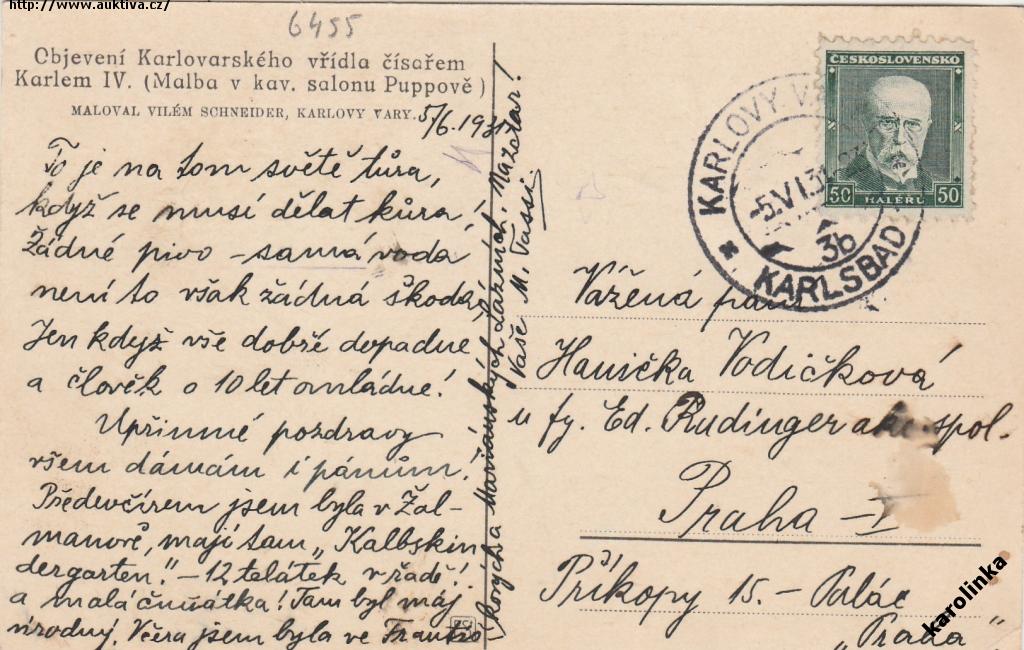 http://www.auktiva.cz/
6455
Objevení Karlovarského vřídla čísařem
Karlem IV. (Malba v kav. salonu Puppově)
MALOVAL VILÉM SCHNEIDER, KARLOVY VARY.
5/6. 1931
To je na tom světě túra,
když se musí dělat kúra!
Žádné pivo – samá voda
není to však žádná škoda,
Jen když vše dobře dopadne
a člověk o 10 let omládne!
Upřimné pozdravy
všem dámám i pánům!
Předevčírem jsem byla v Žal-
manově, mají tam „Kalbskin
dergarten." – 12 telátek v řadě!
a malá čuňátka! Tam byl máj
Včera jsem byla ve Františ
kových a Mariánských Lázních. Nazdar!
Vaše M. Tassi
ČESKOSLOVENSKO
50 HALÉŘŮ 50
KARLOVY VARY
-5.VI.31
3b
* KARLSBAD
Vážená paní
Hanička Vodičková
u fy. Ed. Rudinger a spol.
Praha – I
Příkopy 15. – Palác
„Prada"
karolinka